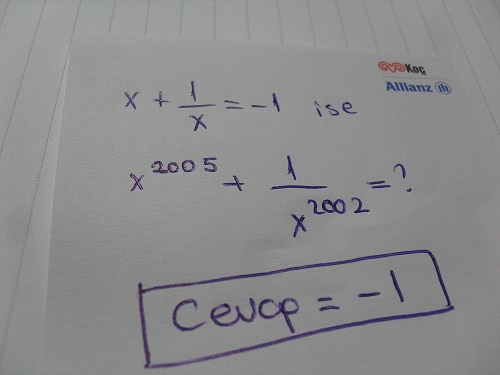 Koç
Allianz
x + 1/x = -1 ise
x^2005 + 1/x^2002 = ?
Cevap = -1